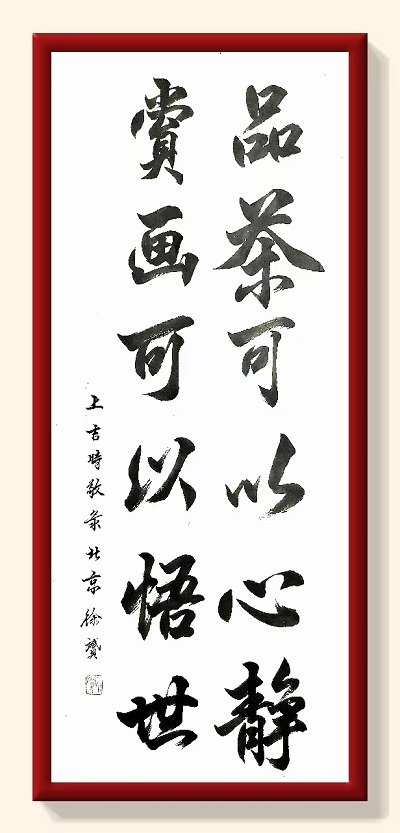 品茶可以心静
赏画可以悟世
上吉時敬录北京徐赟